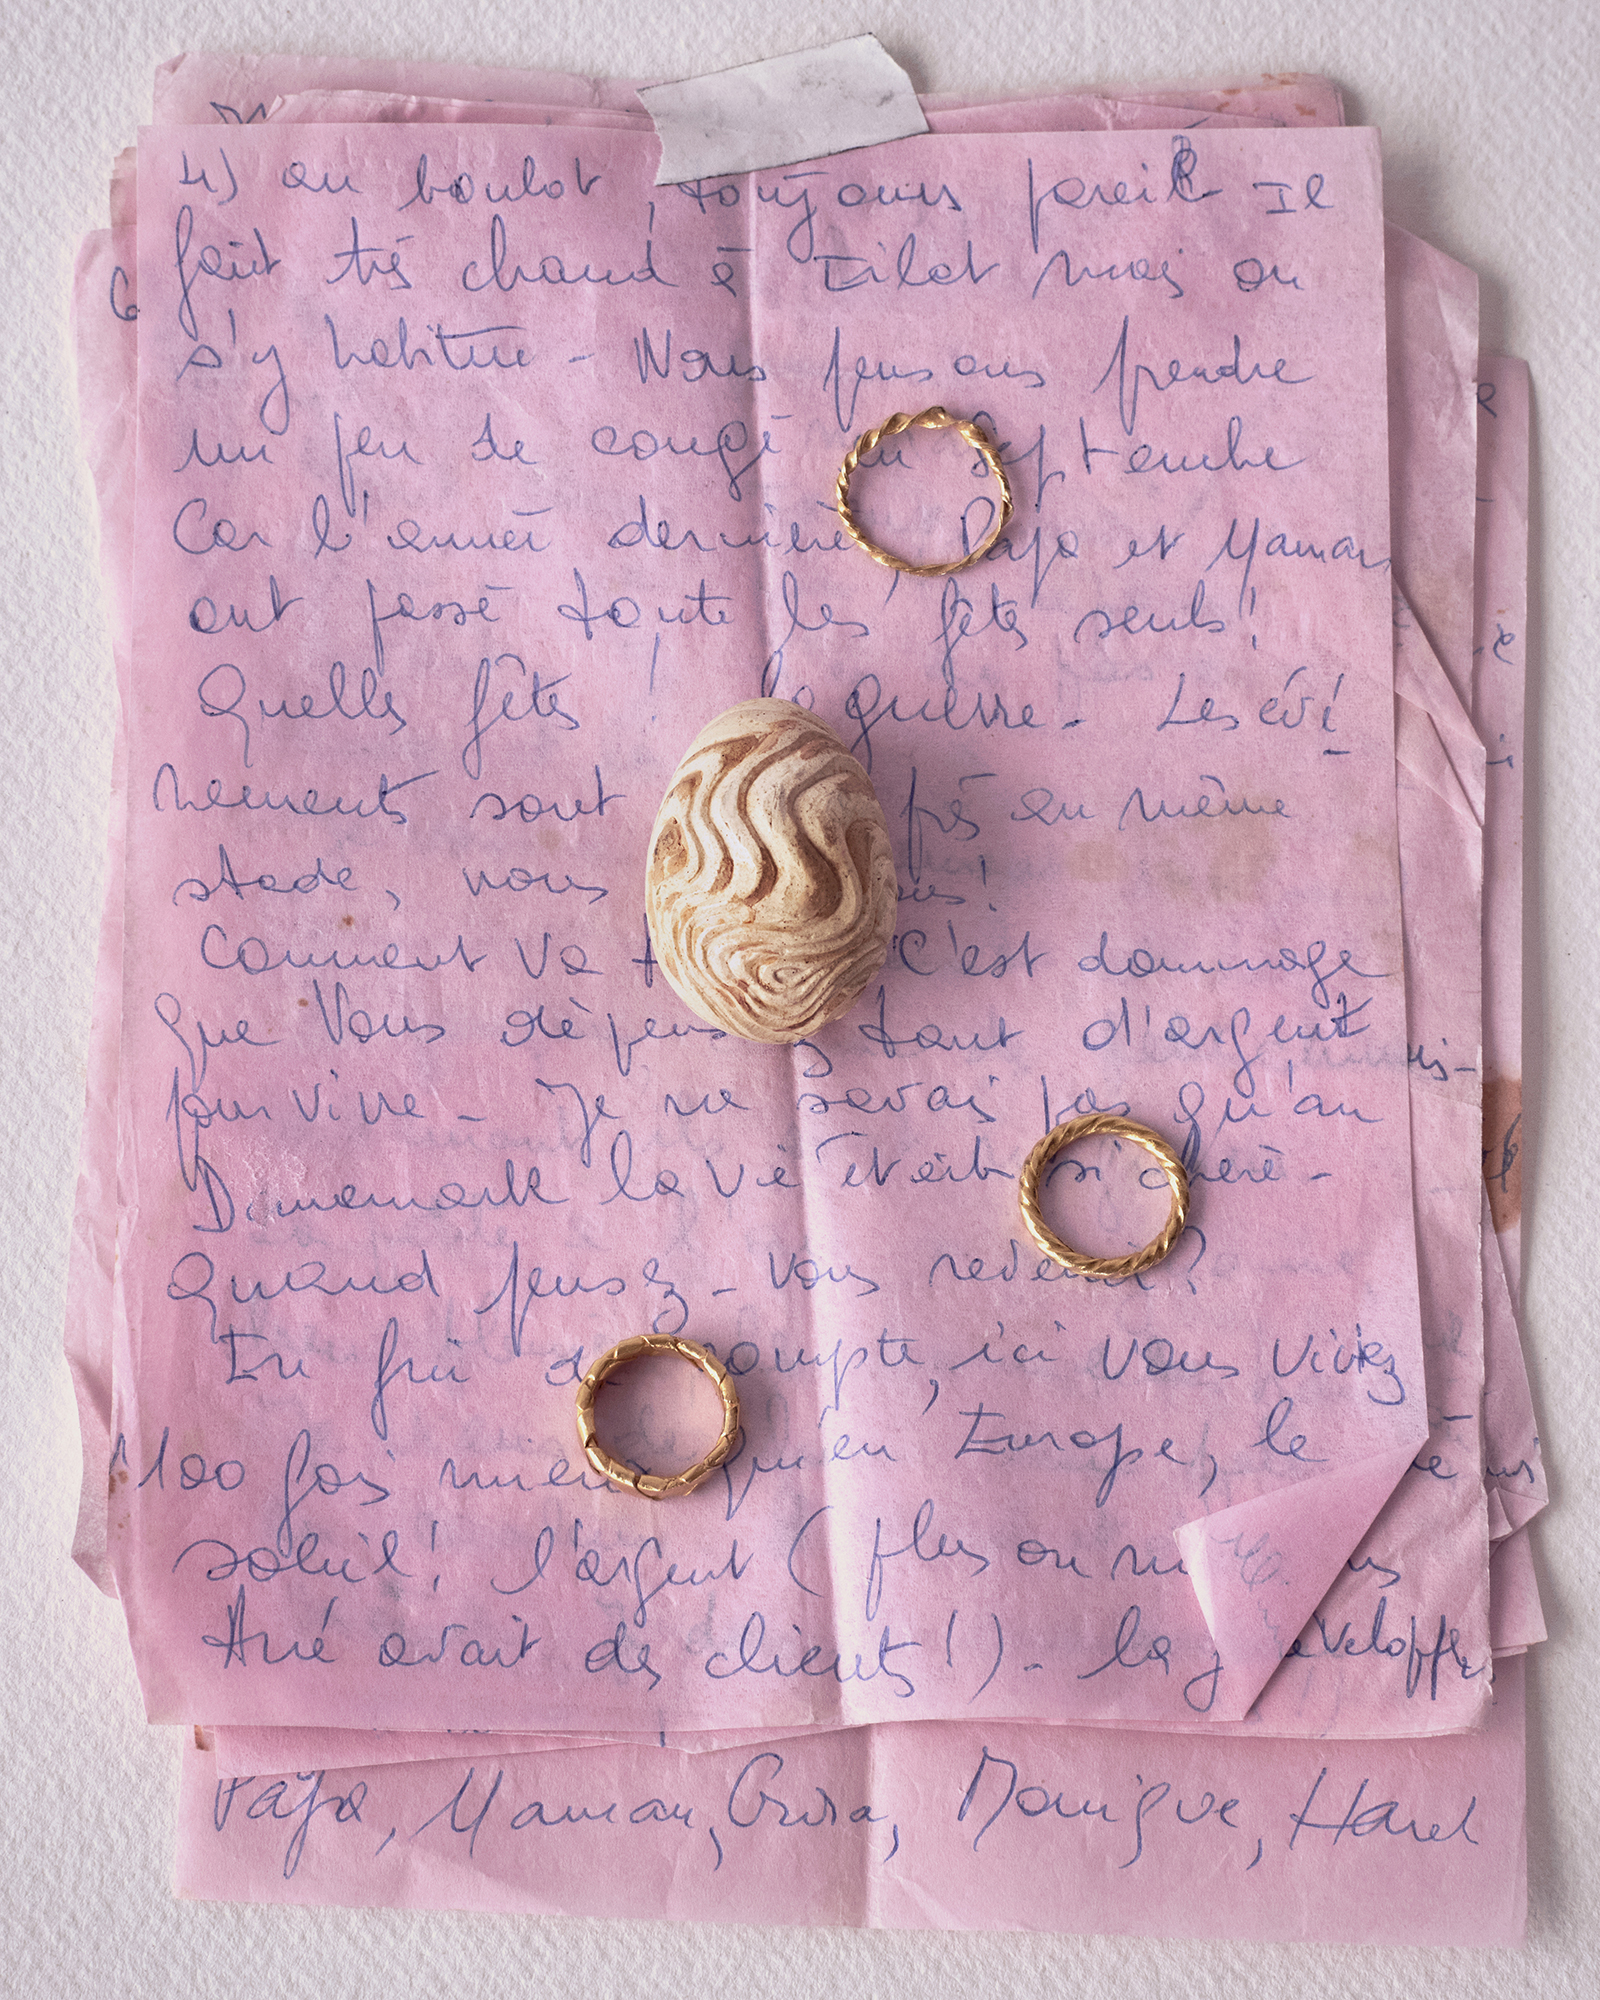 4) au boulot, toujours pareil Il
fait très chaud à Eilat mais on
s'y habitue - Nous pensons prendre
un peu de congé en Septembre
Car l'année dernière, Papa et Maman
ont passé toute les fêtes seuls!
Quelles fêtes! la guerre. Les évé
nements sont près au même
stade, nous
Comment va C'est dommage
que Vous dépensez tant d'argent
pour vivre - Je ne savais pas qu'au
Danemark la vie était si chère -
Quand pensez-vous revenir?
En fin de compte, ici vous viviez
100 fois mieux qu'en Europe, le
soleil! l'argent (plus ou
avait des clients!) - la
Papa, Maman, Monique, Harel